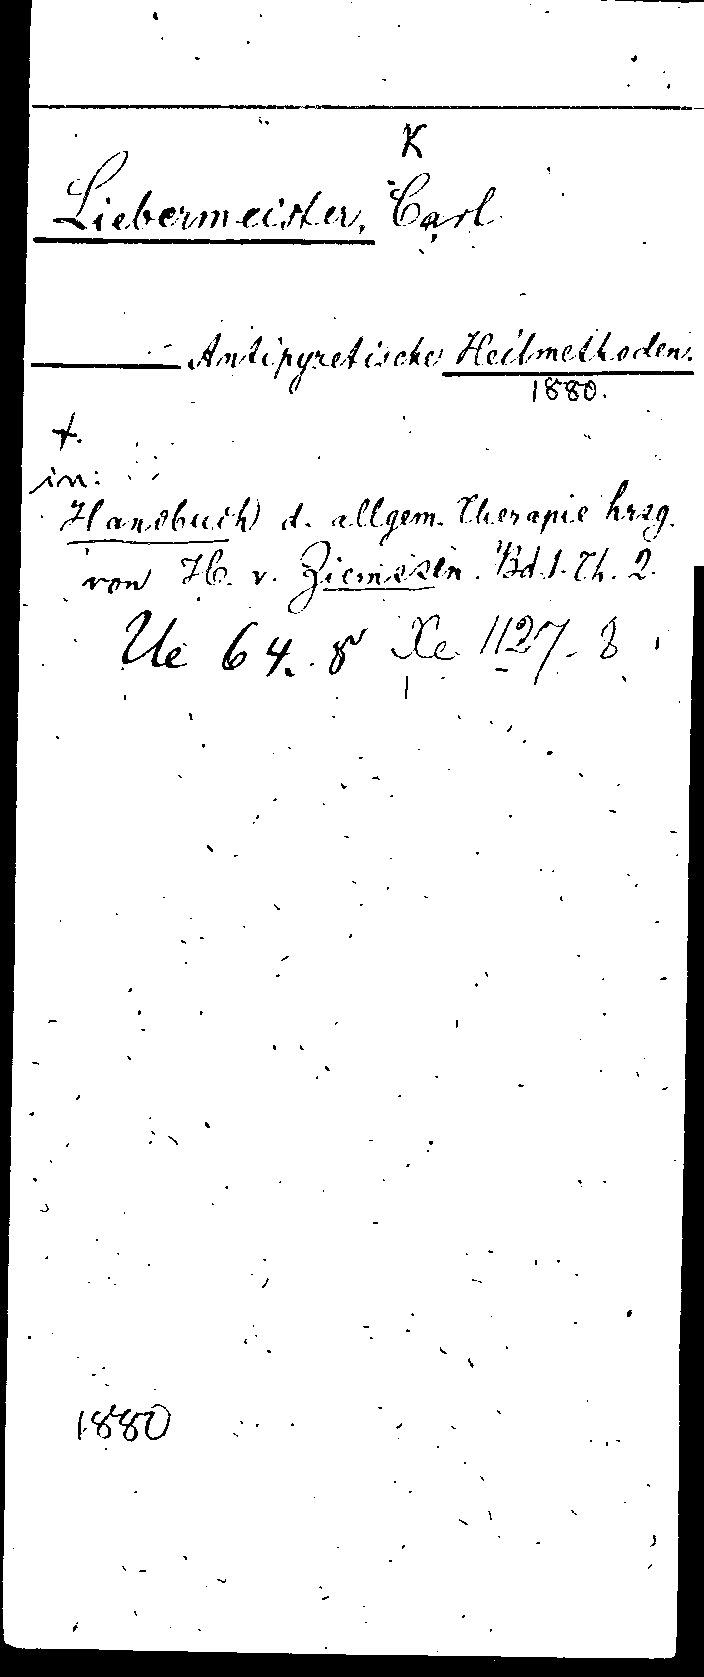 K
Liebermeister, Carl
— Antipyretische Heilmethoden.
1880.
+.
in:
Handbuch d. allgem. Therapie hrsg.
von H. v. Ziemssen. Bd. 1. Th. 2.
Ue 64. 8 Xe 1127. 8
1880